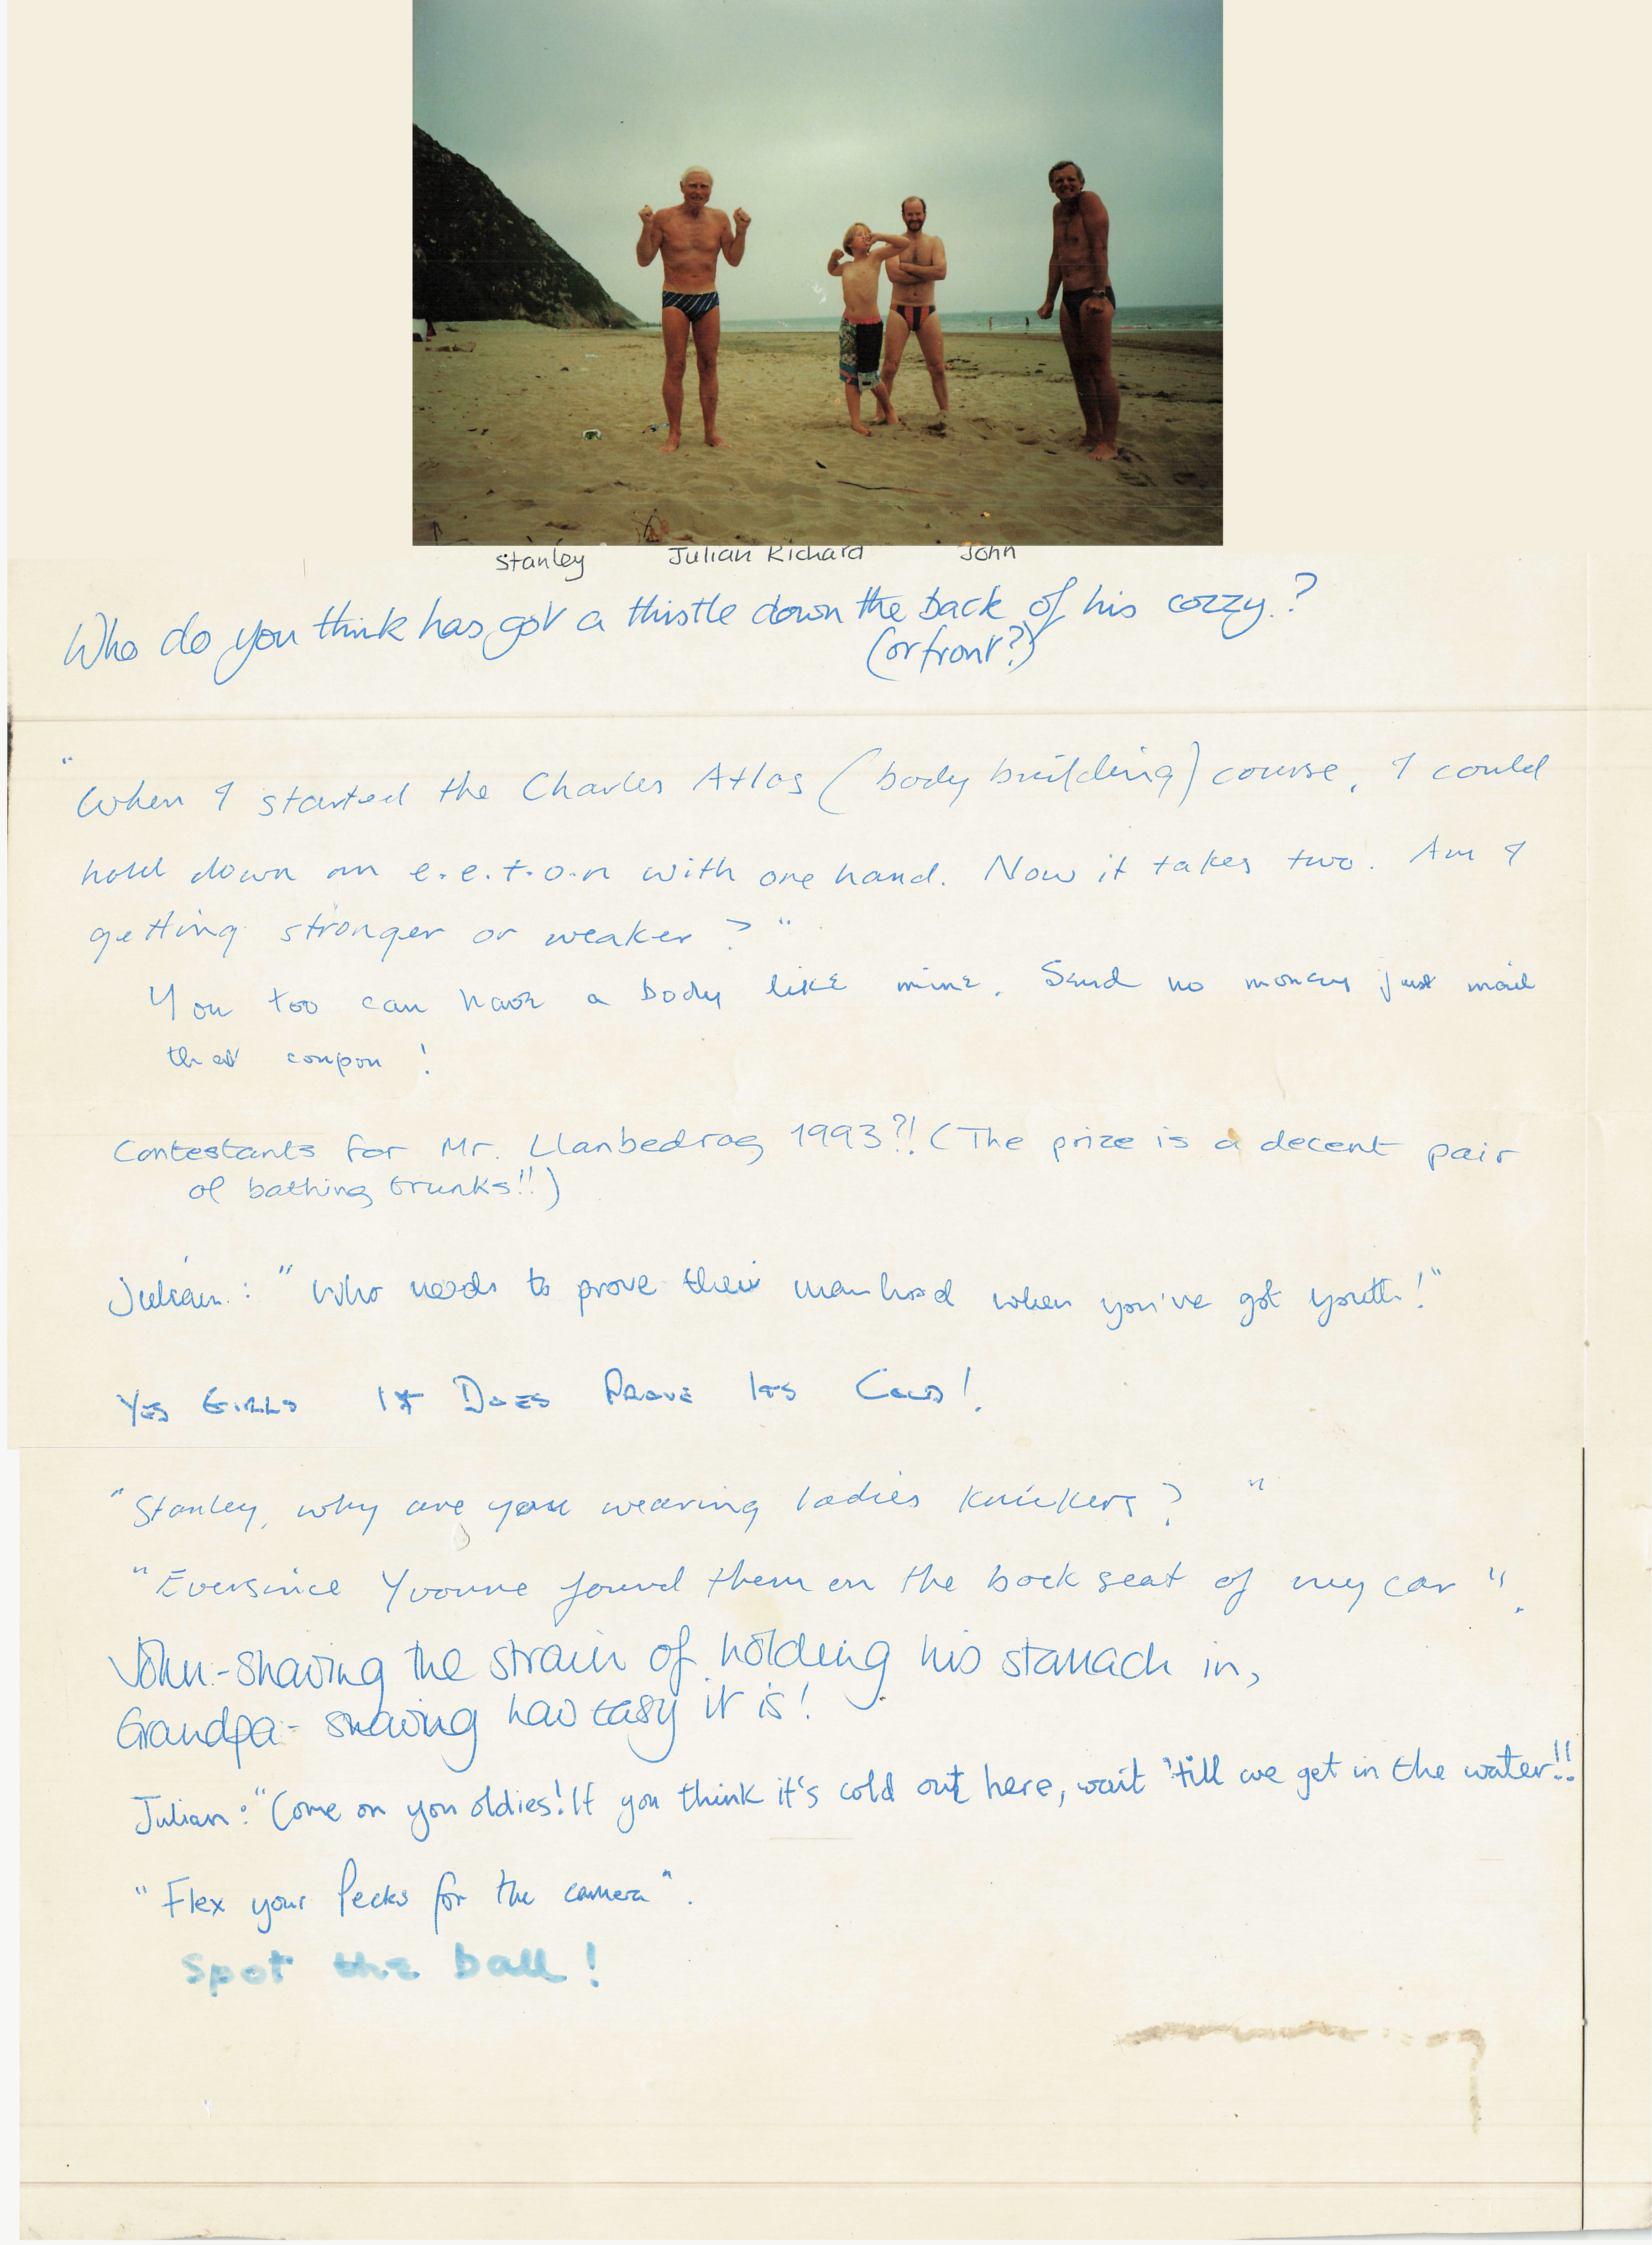 Stanley Julian Richard John
Who do you think has got a thistle down the back of his cozzy?
(or front?)
"When I started the Charles Atlas (body building) course, I could
hold down an e.e.t.o.n with one hand. Now it takes two. Am I
getting stronger or weaker?"
You too can have a body like mine. Send no money just mail
that coupon!
Contestants for Mr. Llanbedrog 1993?! (The prize is a decent pair
of bathing trunks!!)
Julian: "Who needs to prove their manhood when you've got youth!"
YES GIRLS IT DOES PROVE ITS COLD!
"Stanley, why are you wearing ladies knickers?"
"Eversince Yvonne found them on the back seat of my car".
John:- showing the strain of holding his stomach in,
Grandpa:- showing how easy it is!
Julian: "Come on you oldies! If you think it's cold out here, wait 'till we get in the water!!
"Flex your Pecks for the camera".
Spot the ball!